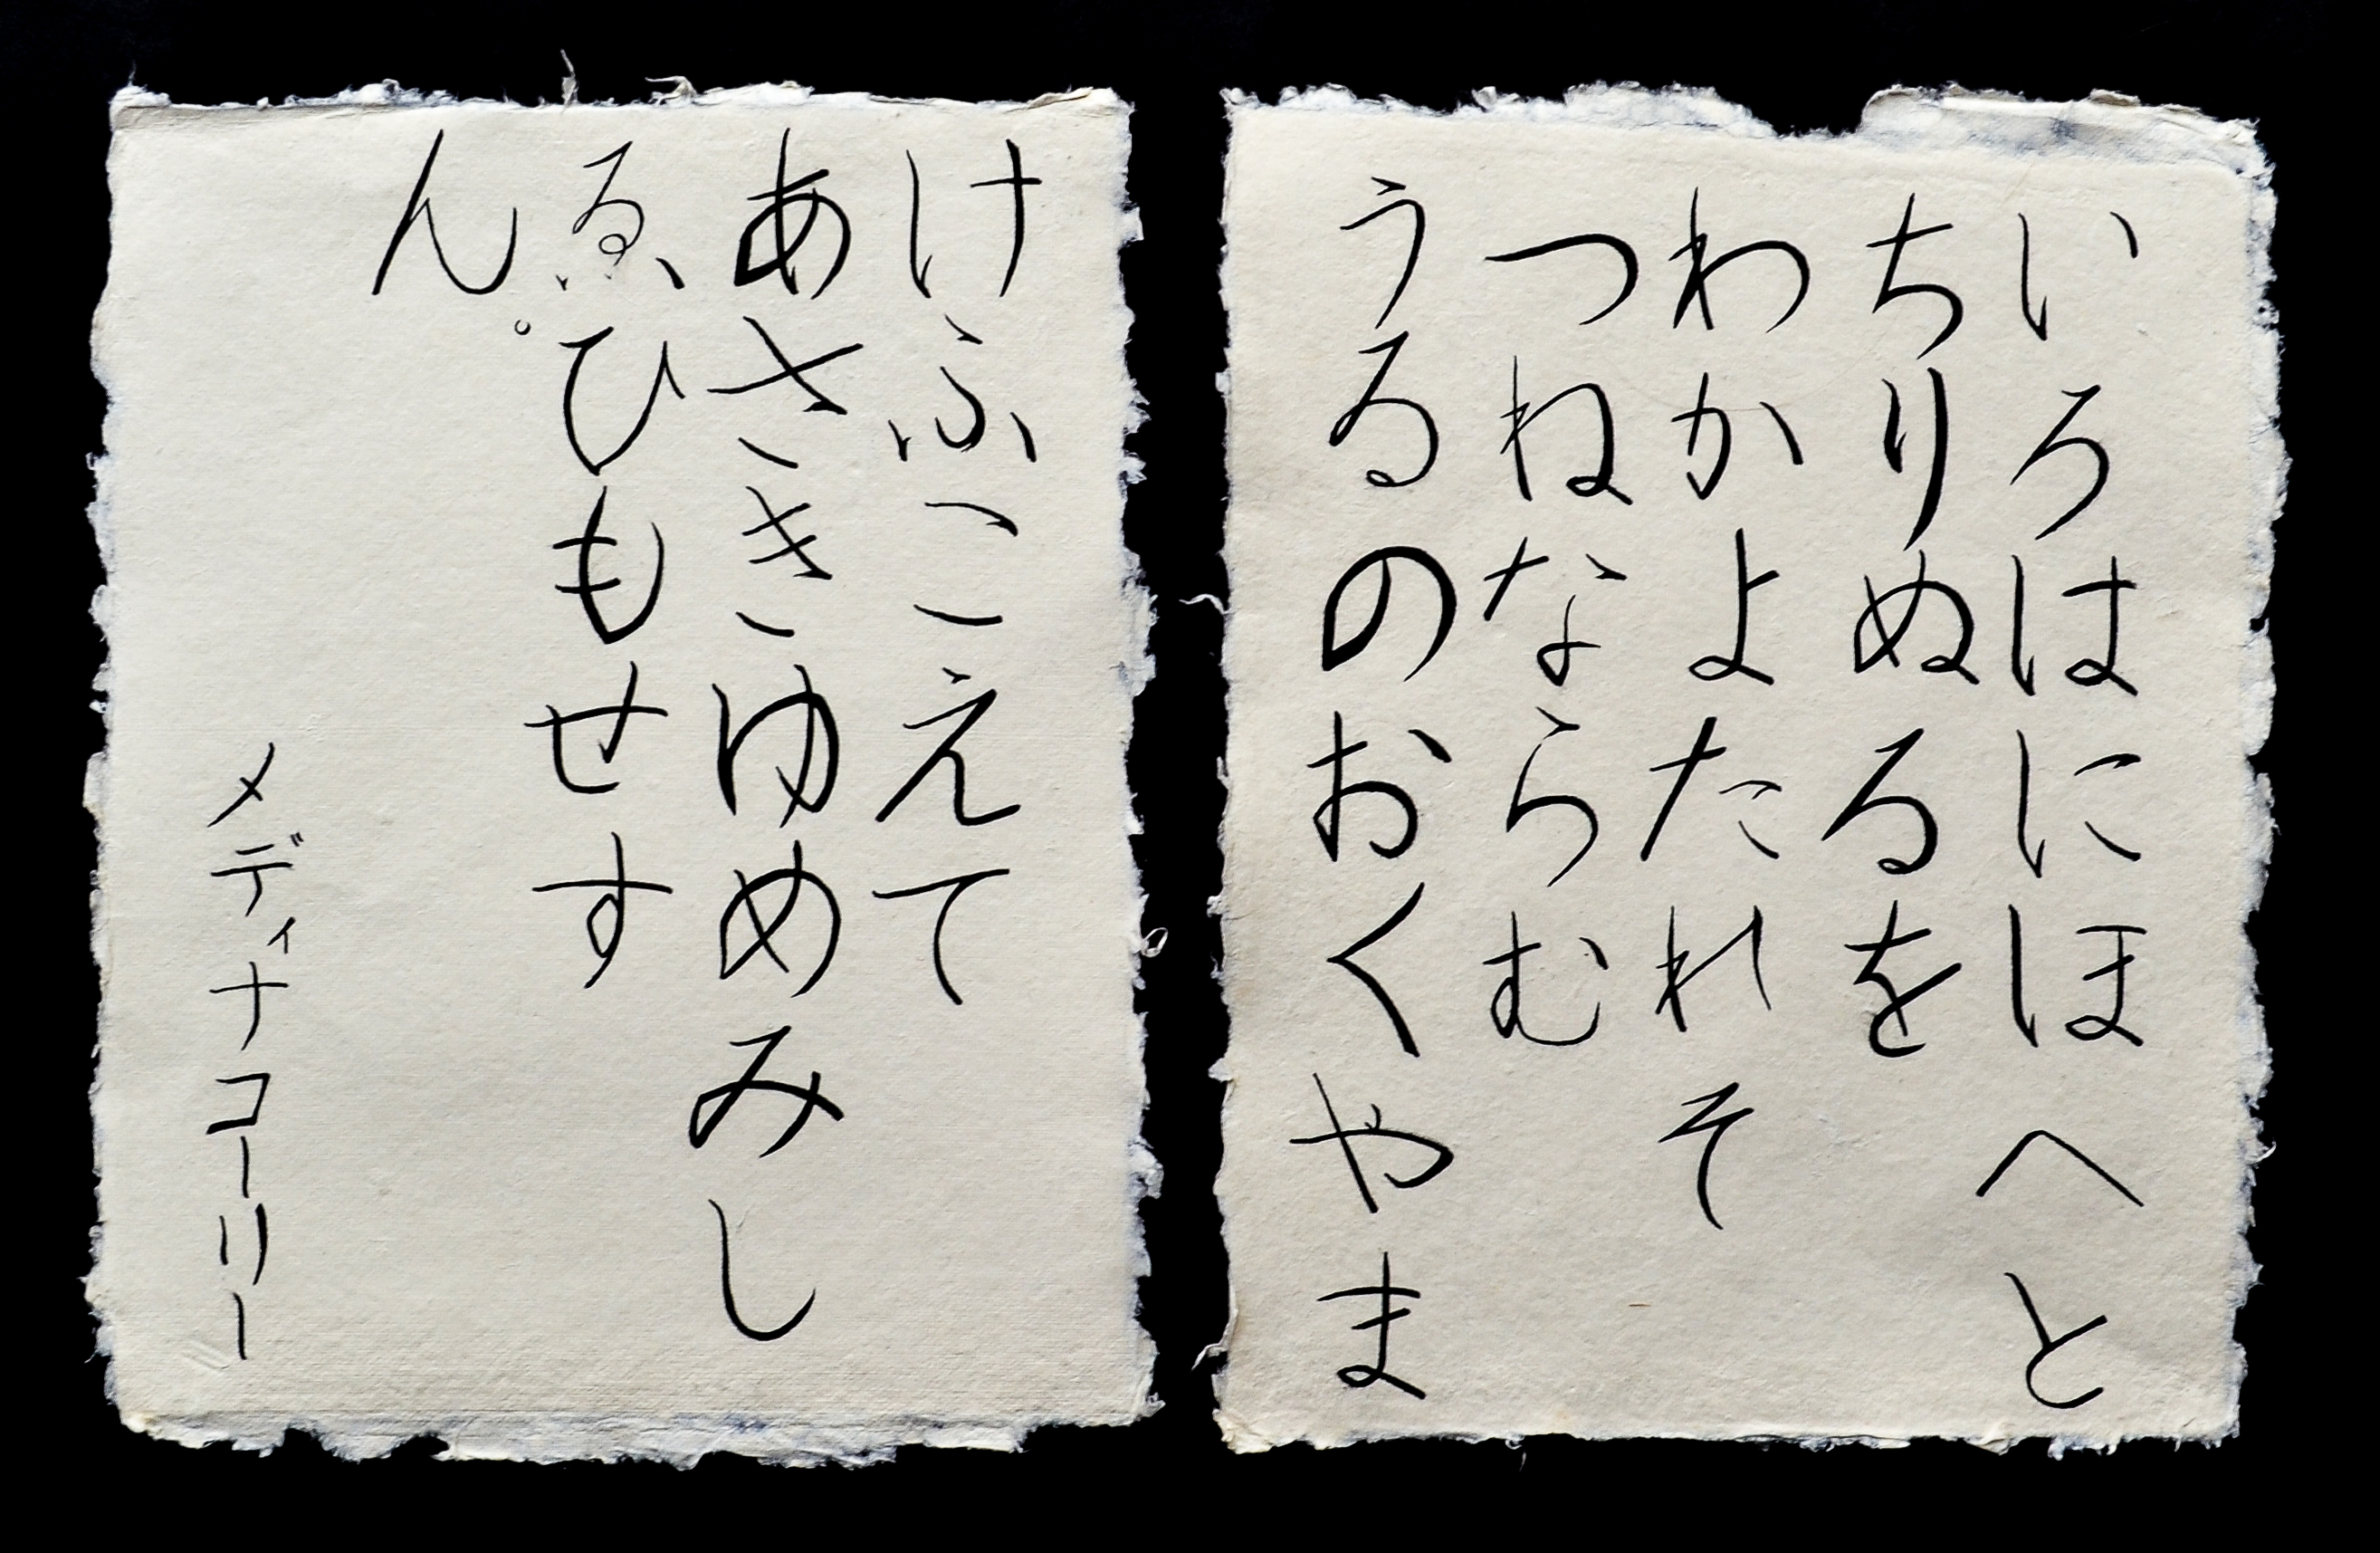 いろはにほへと
ちりぬるを
わかよたれそ
つねならむ
うるのおくやま
けふこえて
あさきゆめみし
ゑひもせす
ん。
メディナコーリー